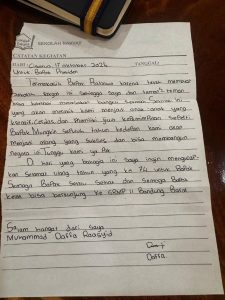 SEKOLAH RAKYAT
CATATAN KEGIATAN
HARI : 17 oktober 2025
TANGGAL:
Untuk Bapak Presiden
Terimakasih Bapak Prabowo karena telah membuat
Sekolah Rakyat ini Sehingga saya dan teman² teman
bisa kembali merasakan bangku Sekolah. Sekolah ini
yang akan menjadi kami menjadi anak-anak yang
kreatif, Cerdas, dan Memiliki jiwa kepemimpinan seperti
Bapak. Mungkin Sepuluh tahun kedepan kami akan
Menjadi orang yang Sukses, dan bisa membangun
negara ini. Tunggu kami ya Pak
Di hari yang bahagia ini saya ingin mengucap
kan Selamat ulang tahun yang ke 74 untuk Bapak
Semoga Bapak Selalu Sehat dan Semoga Bapak
kelak bisa berkunjung ke SRMP 11 Bandung Barat
Salam hangat dari saya
Muhammad Daffa Raasyid
Daffa